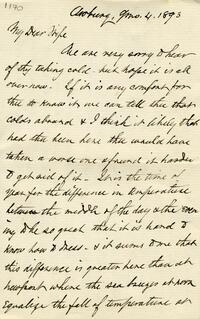 1170
Newburg, 9mo. 4. 1893
My Dear Wife
We are very sorry to hear
of thy taking cold - but hope it is all
over now. If it is any comfort for
thee to know it we can tell thee that
colds abound & I think it likely that
had thee been here thee would have
taken a worse one & found it harder
to get rid of it - It is the time of
year for the difference in temperature
between the middle of the day & the even
ing to be so great that it is hard to
know how to dress - & it seems to me that
this difference is greater here than at
Newport where the sea breeze at noon
equalize the fall of temperature at